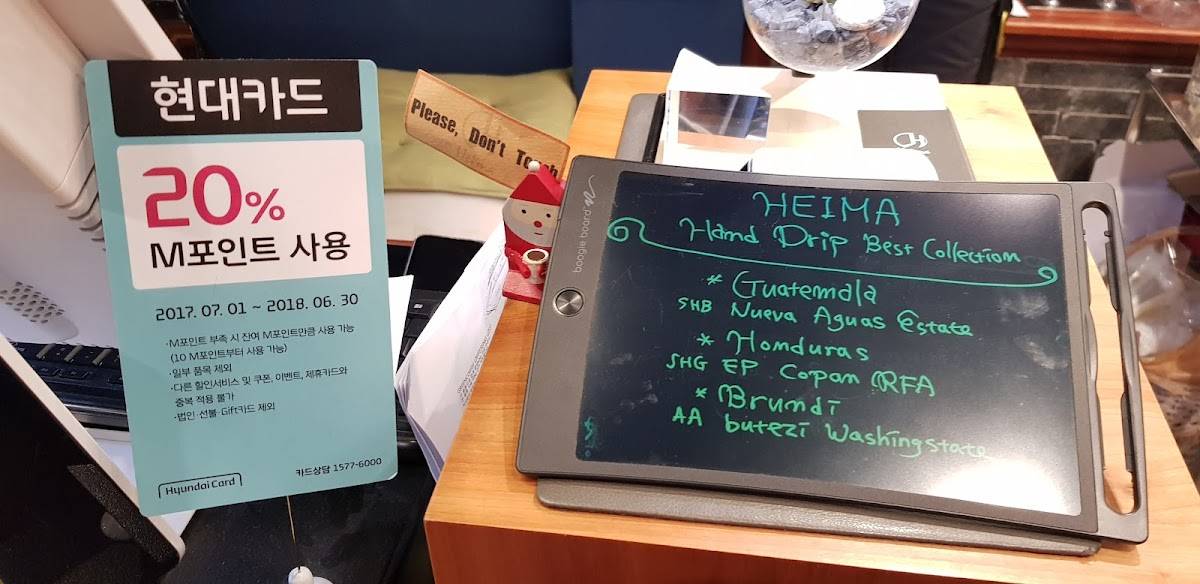 현대카드
20%
M포인트 사용
2017. 07. 01 ~ 2018. 06. 30
·M포인트 부족 시 잔여 M포인트만큼 사용 가능
(10 M포인트부터 사용 가능)
·일부 품목 제외
·다른 할인서비스 및 쿠폰, 이벤트, 제휴카드와
중복 적용 불가
·법인·선불·Gift카드 제외
HyundaiCard
카드상담 1577-6000
Please, Don't Touch
boogie board
HEIMA
Hand Drip Best Collection
* Guatemala
SHB Nueva Aguas Estate
* Honduras
SHG EP Copan RFA
* Brundi
AA butezi Washingstate